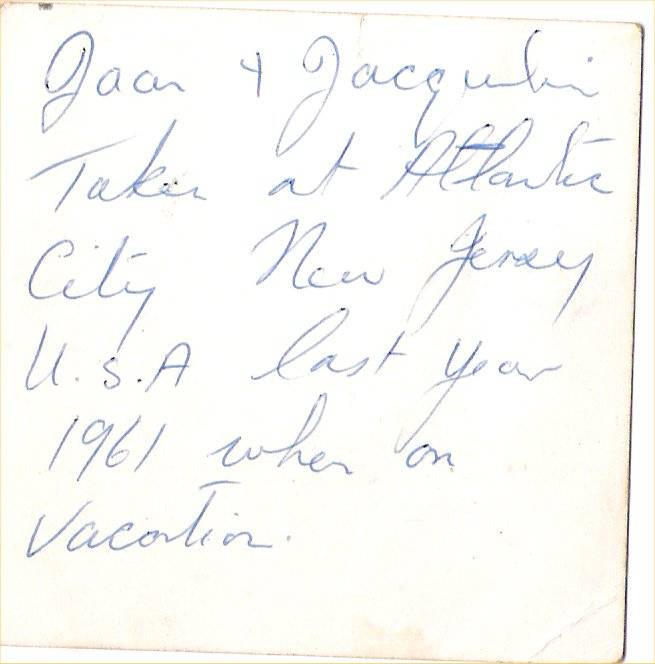 Joan & Jacquelin
Taken at Atlantic
City New Jersey
U.S.A last year
1961 when on
Vacation.